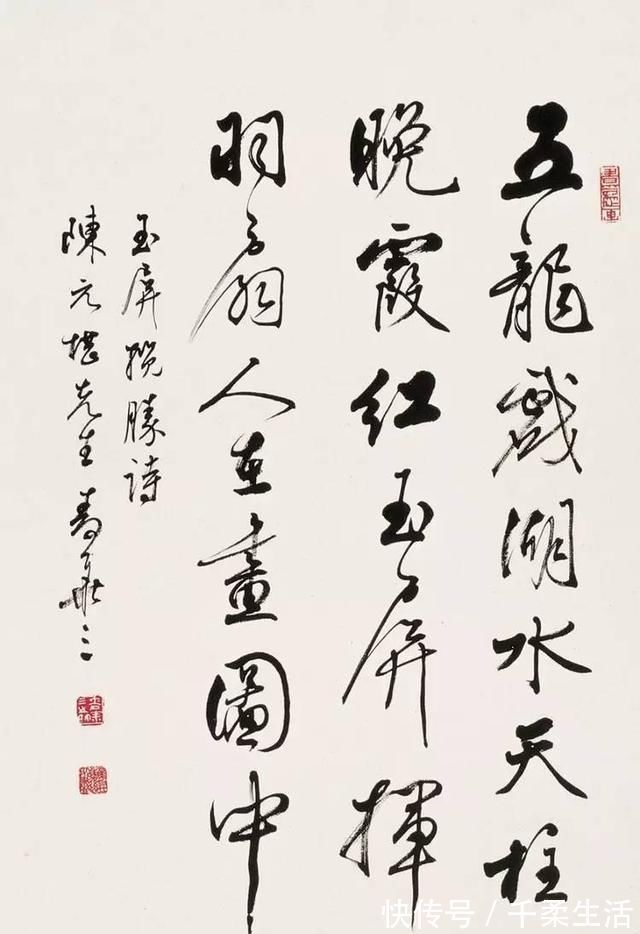 五龍戲湖水天柱
晚霞紅玉屏揮
羽扇人在畫圖中
玉屏攬勝詩
陳元堪先生
快传号/千柔生活